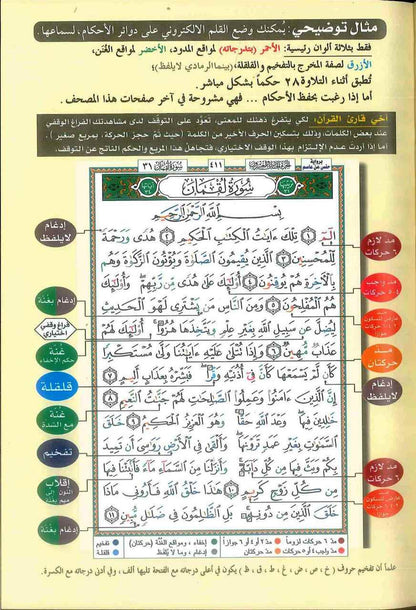 مثال توضيحي : يُمكنك وضع القلم الالكتروني على دوائر الأحكام، لسماعها.
فقط بثلاثة ألوان رئيسية: الأحمر (بتدرجاته) لمواقع المدود، الأخضر لمواقع الغُنَن،
الأزرق لصفة المخرج بالتفخيم والقلقلة، (بينما الرمادي لا يلفظ)
تُطبق أثناء التلاوة ٢٨ حكماً بشكل مباشر.
أما إذا رغبت بحفظ الأحكام ... فهي مشروحة في آخر صفحات هذا المصحف.
أخي قارئ القرآن: لكي يتفرغ ذهنك للمعنى، تعوّد على التوقف لدى مشاهدتك الفراغ الوقفي
عند بعض الكلمات، وذلك بتسكين الحرف الأخير من الكلمة (حيث تمّ حجز الحركة، بمربع صغير).
أما إذا أردت عدم الإلتزام بهذا الوقف الاختياري، فتجاهل هذا المربع والحكم الناتج عن التوقف.
سُورَةُ لُقْمَان ٣١
٤١١
برواية
حفص عن عاصم
سُورَةُ لُقْمَان
بِسْمِ اللَّهِ الرَّحْمَٰنِ الرَّحِيمِ
الٓمٓ ١ تِلْكَ ءَايَٰتُ الْكِتَٰبِ الْحَكِيمِ ٢ هُدًى وَرَحْمَةً
لِّلْمُحْسِنِينَ ٣ الَّذِينَ يُقِيمُونَ الصَّلَوٰةَ وَيُؤْتُونَ الزَّكَوٰةَ وَهُم
بِالْءَاخِرَةِ هُمْ يُوقِنُونَ ٤ أُو۟لَٰٓئِكَ عَلَىٰ هُدًى مِّن رَّبِّهِمْ وَأُو۟لَٰٓئِكَ
هُمُ الْمُفْلِحُونَ ٥ وَمِنَ النَّاسِ مَن يَشْتَرِى لَهْوَ الْحَدِيثِ
لِيُضِلَّ عَن سَبِيلِ اللَّهِ بِغَيْرِ عِلْمٍ وَيَتَّخِذَهَا هُزُوًا أُو۟لَٰٓئِكَ لَهُمْ
عَذَابٌ مُّهِينٌ ٦ وَإِذَا تُتْلَىٰ عَلَيْهِ ءَايَٰتُنَا وَلَّىٰ مُسْتَكْبِرًا
كَأَن لَّمْ يَسْمَعْهَا كَأَنَّ فِىٓ أُذُنَيْهِ وَقْرًا فَبَشِّرْهُ بِعَذَابٍ أَلِيمٍ ٧
إِنَّ الَّذِينَ ءَامَنُوا۟ وَعَمِلُوا۟ الصَّٰلِحَٰتِ لَهُمْ جَنَّٰتُ النَّعِيمِ ٨
خَٰلِدِينَ فِيهَا وَعْدَ اللَّهِ حَقًّا وَهُوَ الْعَزِيزُ الْحَكِيمُ ٩ خَلَقَ
السَّمَٰوَٰتِ بِغَيْرِ عَمَدٍ تَرَوْنَهَا وَأَلْقَىٰ فِى الْأَرْضِ رَوَٰسِىَ أَن تَمِيدَ
بِكُمْ وَبَثَّ فِيهَا مِن كُلِّ دَآبَّةٍ وَأَنزَلْنَا مِنَ السَّمَآءِ مَآءً فَأَنۢبَتْنَا فِيهَا
مِن كُلِّ زَوْجٍ كَرِيمٍ ١٠ هَٰذَا خَلْقُ اللَّهِ فَأَرُونِى مَاذَا
خَلَقَ الَّذِينَ مِن دُونِهِ بَلِ الظَّٰلِمُونَ فِى ضَلَٰلٍ مُّبِينٍ ١١
مد لازم
٦ حركات
مد واجب
٤ـ٥ حركات
مد
حركتان
إدغام
لا يلفظ
مد لازم
٦ حركات
إدغام
لا يلفظ
إدغام بغُنّة
فراغ وقفي
اختياري
غُنّة
حكم الاخفاء
قلقلة
غُنّة
مع الشدة
تفخيم
إقلاب
النون إلى
ميم بغنة
إدغام بغُنّة
مدّ ٦ حركات لزوماً
مدّ ٢ أو ٤ أو ٦ جوازاً
إخفاء، ومواقع الغُنّة (حركتان)
تفخيم
مدّ واجب ٤ أو ٥ حركات
مدّ حركتان
إدغام، وما لا يُلفظ
قلقلة
علماً أن تفخيم حروف (خ ، ص ، ض ، غ ، ط ، ق ، ظ) يكون في أعلى درجاته مع الفتحة تليها ألف ، وفي أدنى درجاته مع الكسرة.